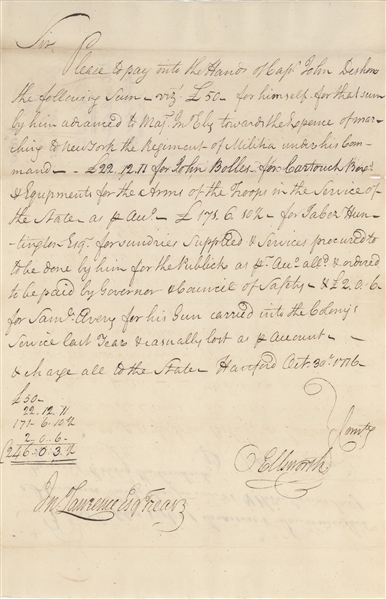 Sir,
Please to pay unto the Hands of Capt John Deshon
the following Sum – viz £50 – for himself for that sum
by him advanced to Maj. Jn° Ely towards the Expence of mar-
ching to New York the Regiment of Militia under his Com-
mand – £22.12.11 for John Bolles for Cartouch Boxes
& Equipments for the Arms of the Troops in the Service of
the State – as pr Acct – £171.6.10½ – for Jabez Hun-
tington Esqr for sundries Supplied & Services procured to
to be done by him for the Publick as pr Acct alld & ordered
to be paid by Governor & Council of Safety – & £2.0.6
for Saml Avery for his Gun carried into the Colony's
Service last Year & casually lost as pr Account –
& charge all to the State – Hartford Oct 30th 1776
£50–
22.12.11
171.6.10½
2.0.6
£246.0.3½
Comtte
Ellsworth
Jn° Lawrence Esqr Trear